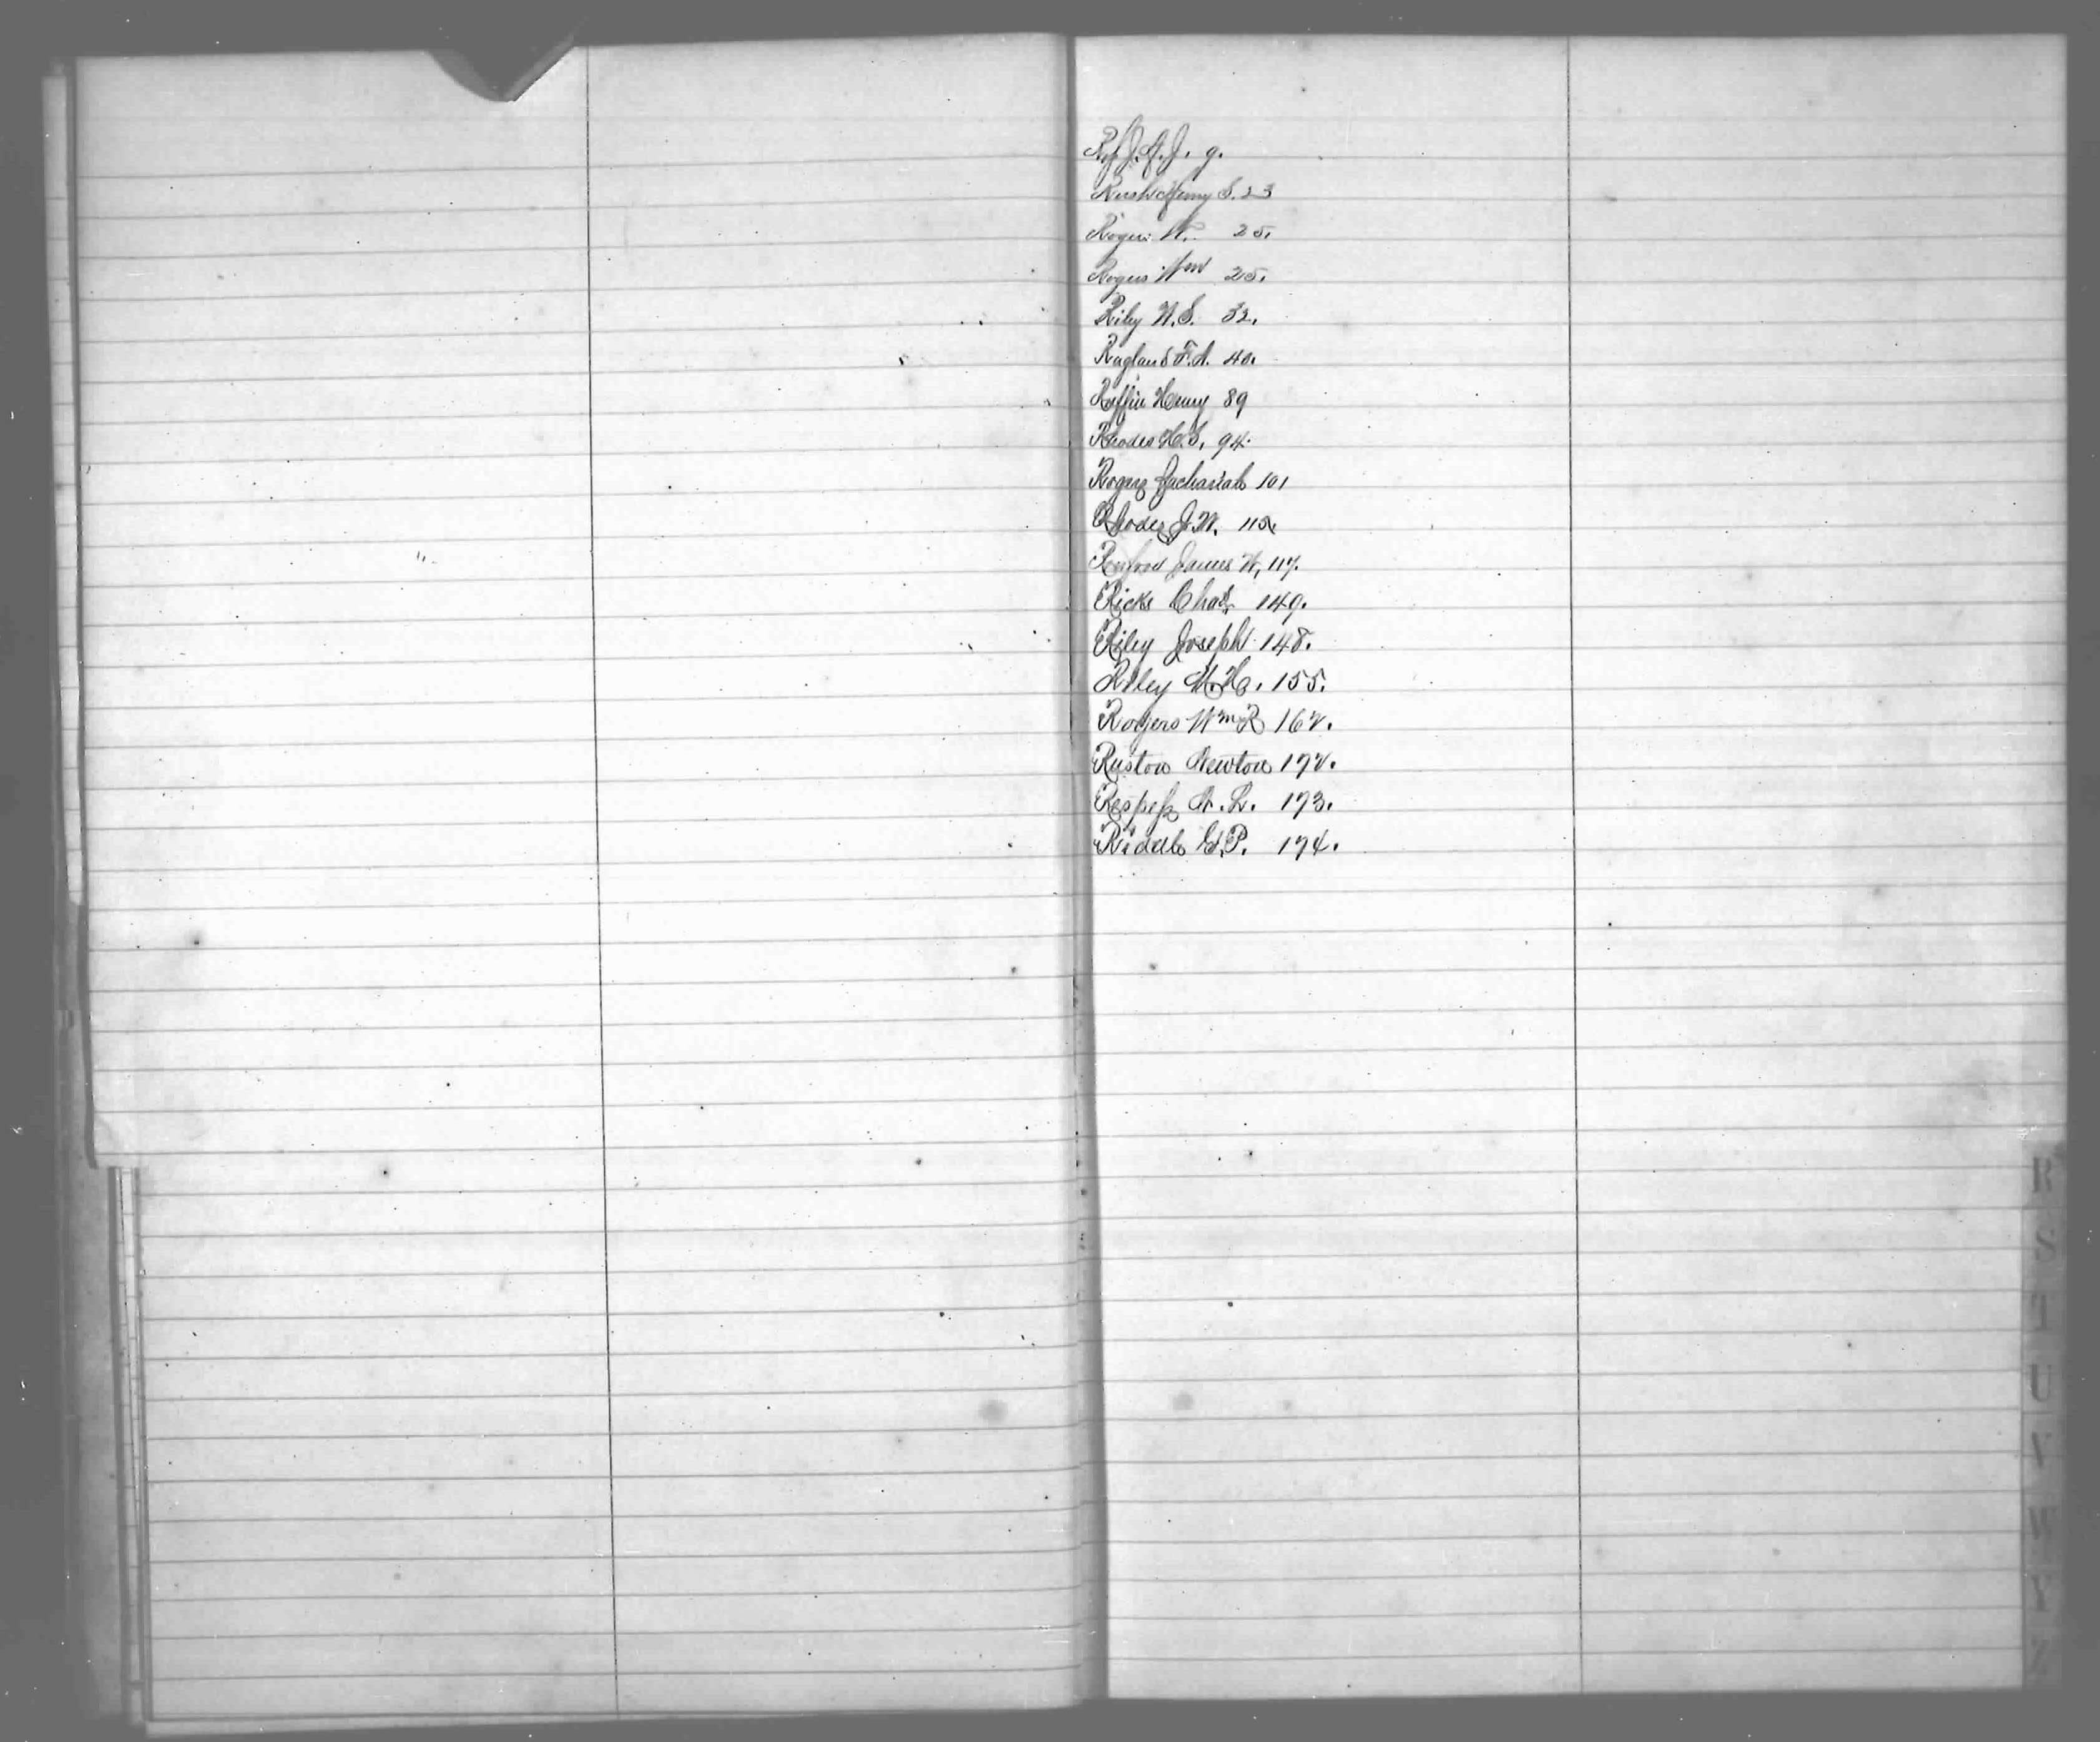 J. A. J. 9.
Rush Henry S. 23
Rogers W. 25.
Rogers Wm 25.
Riley W. S. 32.
Ragland F. A. 40.
Ruffin Henry 89
Rhodes H. S. 94.
Rogers Zachariah 101
Rhodes J. W. 115.
James W, 117.
Ricks Chas. 149.
Riley Joseph 148.
Riley M. H. 155.
Rogers Wm R 162.
Ruston Newton 172.
Respess A. L. 173.
Riddell G. P. 174.
R
S
T
U
V
W
Y
Z